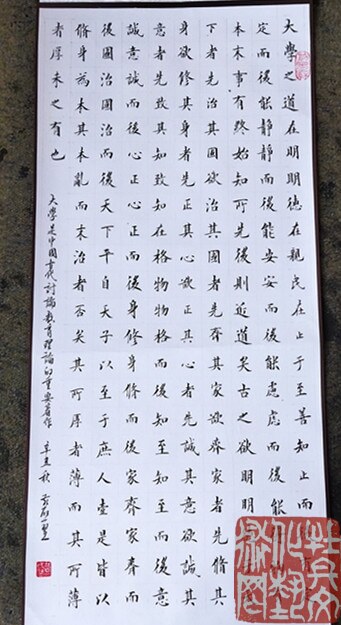 大學之道在明明德在親民在止于至善知止而
定而後能靜靜而後能安安而後能慮慮而後能
本末事有終始知所先後則近道矣古之欲明明
下者先治其國欲治其國者先齊其家欲齊其家者先脩其
身欲修其身者先正其心欲正其心者先誠其意欲誠其
意者先致其知致知在格物物格而後知至知至而後意
誠意誠而後心正心正而後身修身修而後家齊家齊而
後國治國治而後天下平自天子以至于庶人壹是皆以
脩身為本其本亂而末治者否矣其所厚者薄而其所薄
者厚未之有也
大學是中國古代討論教育理論的重要著作 辛丑秋